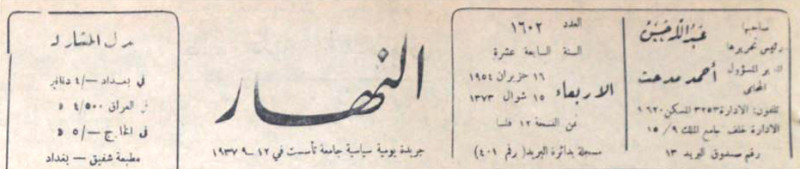 صاحبها
رئيس تحريرها
عبد الله حسن
المدير المسؤول
المحامي
أحمد مدحت
تلفون: الادارة ٣٢٥٣ المسكن ٩٦٢٠
الادارة خلف جامع الملك ٩/ ١٥
رقم صندوق البريد ١٣
العدد ١٦٠٢
السنة السابعة عشرة
الاربعاء
١٦ حزيران ١٩٥٤
١٥ شوال ١٣٧٣
ثمن النسخة ١٢ فلسا
مسجلة بدائرة البريد (رقم ٤٠١)
النهار
جريدة يومية سياسية جامعة تأسست في ١٢-٩-١٩٣٧
بدل المشاركة
في بغداد -/٤ دنانير
في العراق ٤/٥٠٠ د
في الخارج -/٥ د
مطبعة شفيق - بغداد